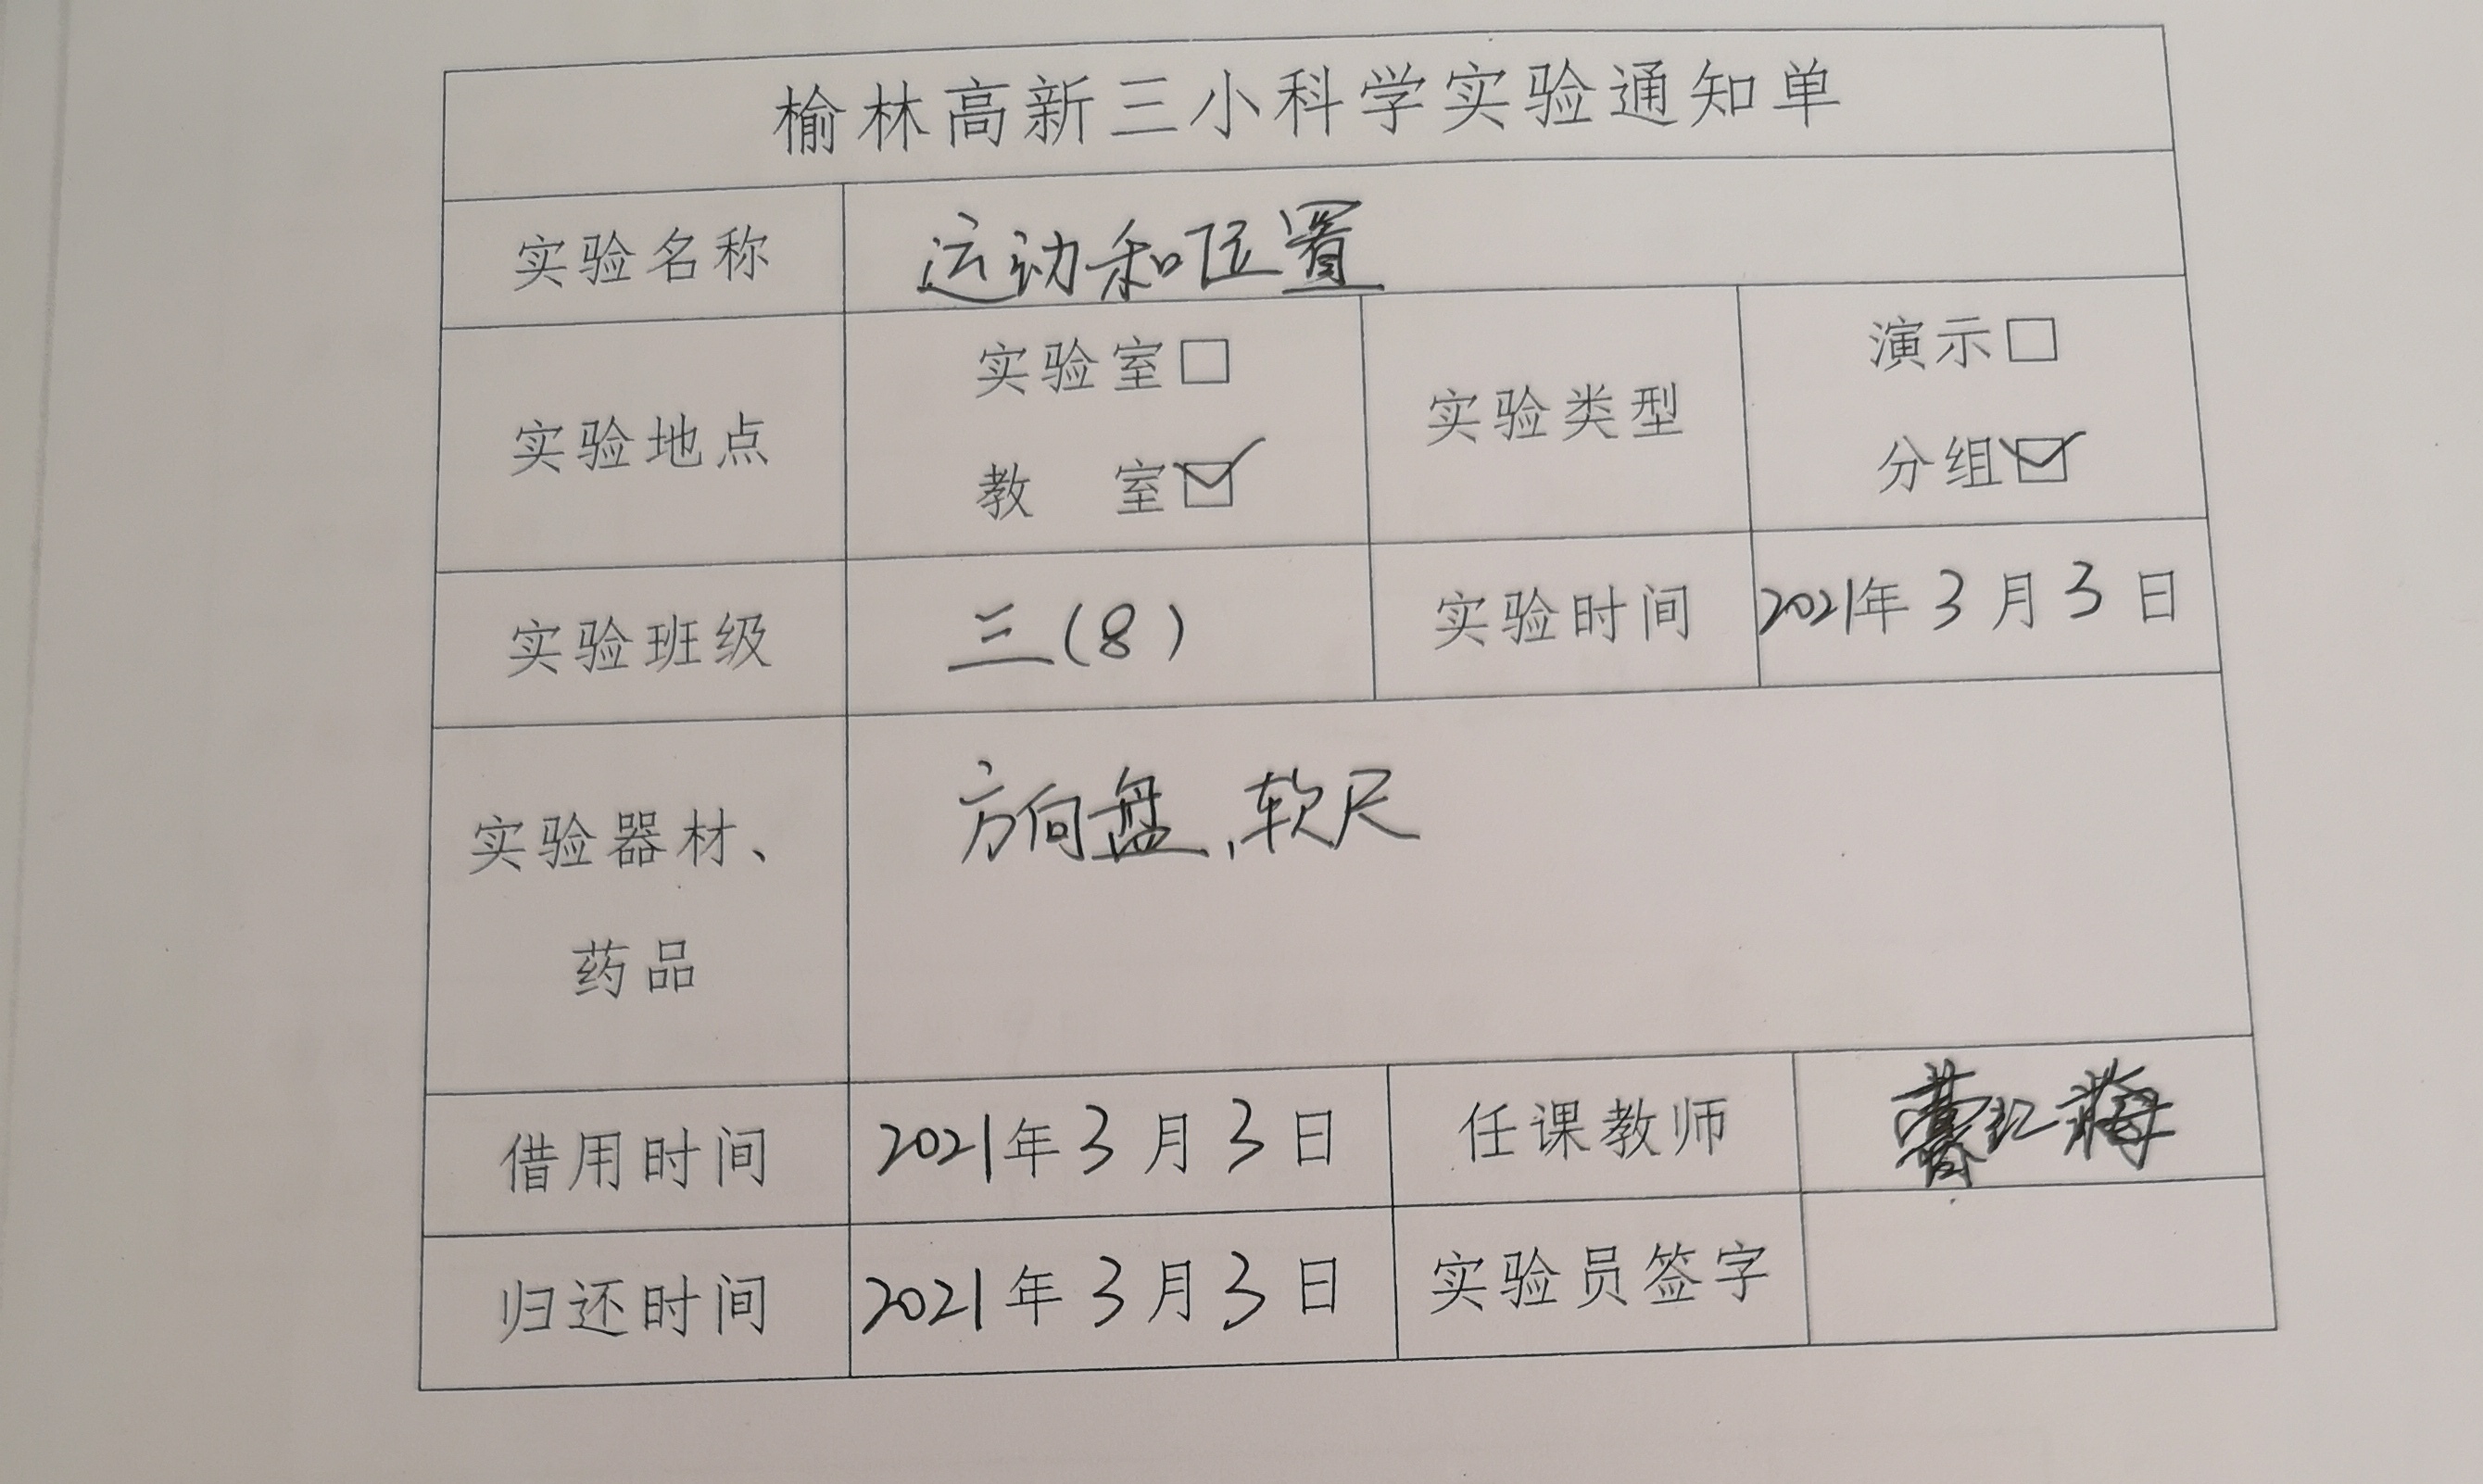 榆林高新三小科学实验通知单
实验名称 运动和位置
实验地点 实验室□ 教 室☑ 实验类型 演示□ 分组☑
实验班级 三(8) 实验时间 2021年3月3日
实验器材、药品 方向盘,软尺
借用时间 2021年3月3日 任课教师 红梅
归还时间 2021年3月3日 实验员签字